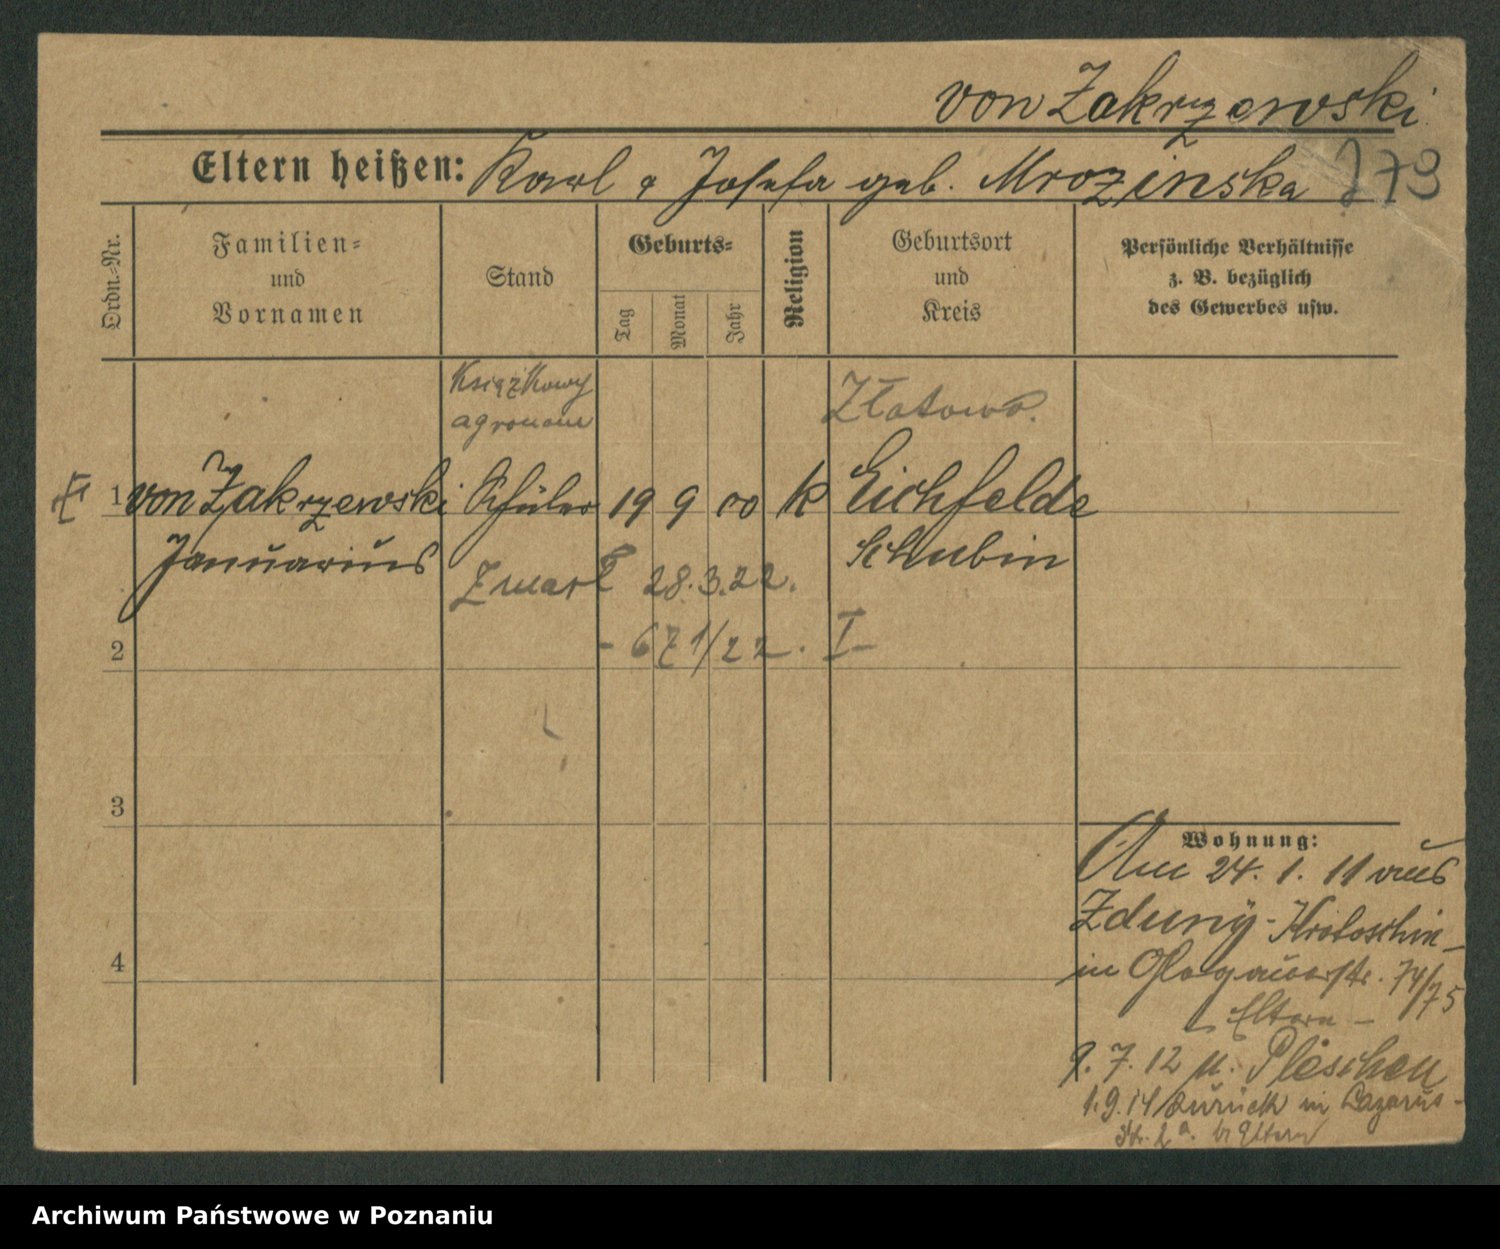 von Zakrzewski
Eltern heißen: Karl & Josefa geb. Mrozinska 773
Ordn.-Nr.
Familien-
und
Vornamen
Stand
Geburts-
Tag
Monat
Jahr
Religion
Geburtsort
und
Kreis
Persönliche Verhältnisse
z. B. bezüglich
des Gewerbes usw.
Książkowy
agronom
Złotowo.
1 von Zakrzewski Schüler 19 9 00 k Eichfelde
Januarius Schubin
Zmarł 28.3.22.
- 671/22. I
2
3
4
Wohnung:
Am 24. 1. 11 aus
Zduny - Krotoschin -
in Glogauerstr. 74/75
- Eltern -
9. 7. 12 n. Pleschen
1.9.14 zurück in Lazarus-
Str. 2a. b Eltern
Archiwum Państwowe w Poznaniu